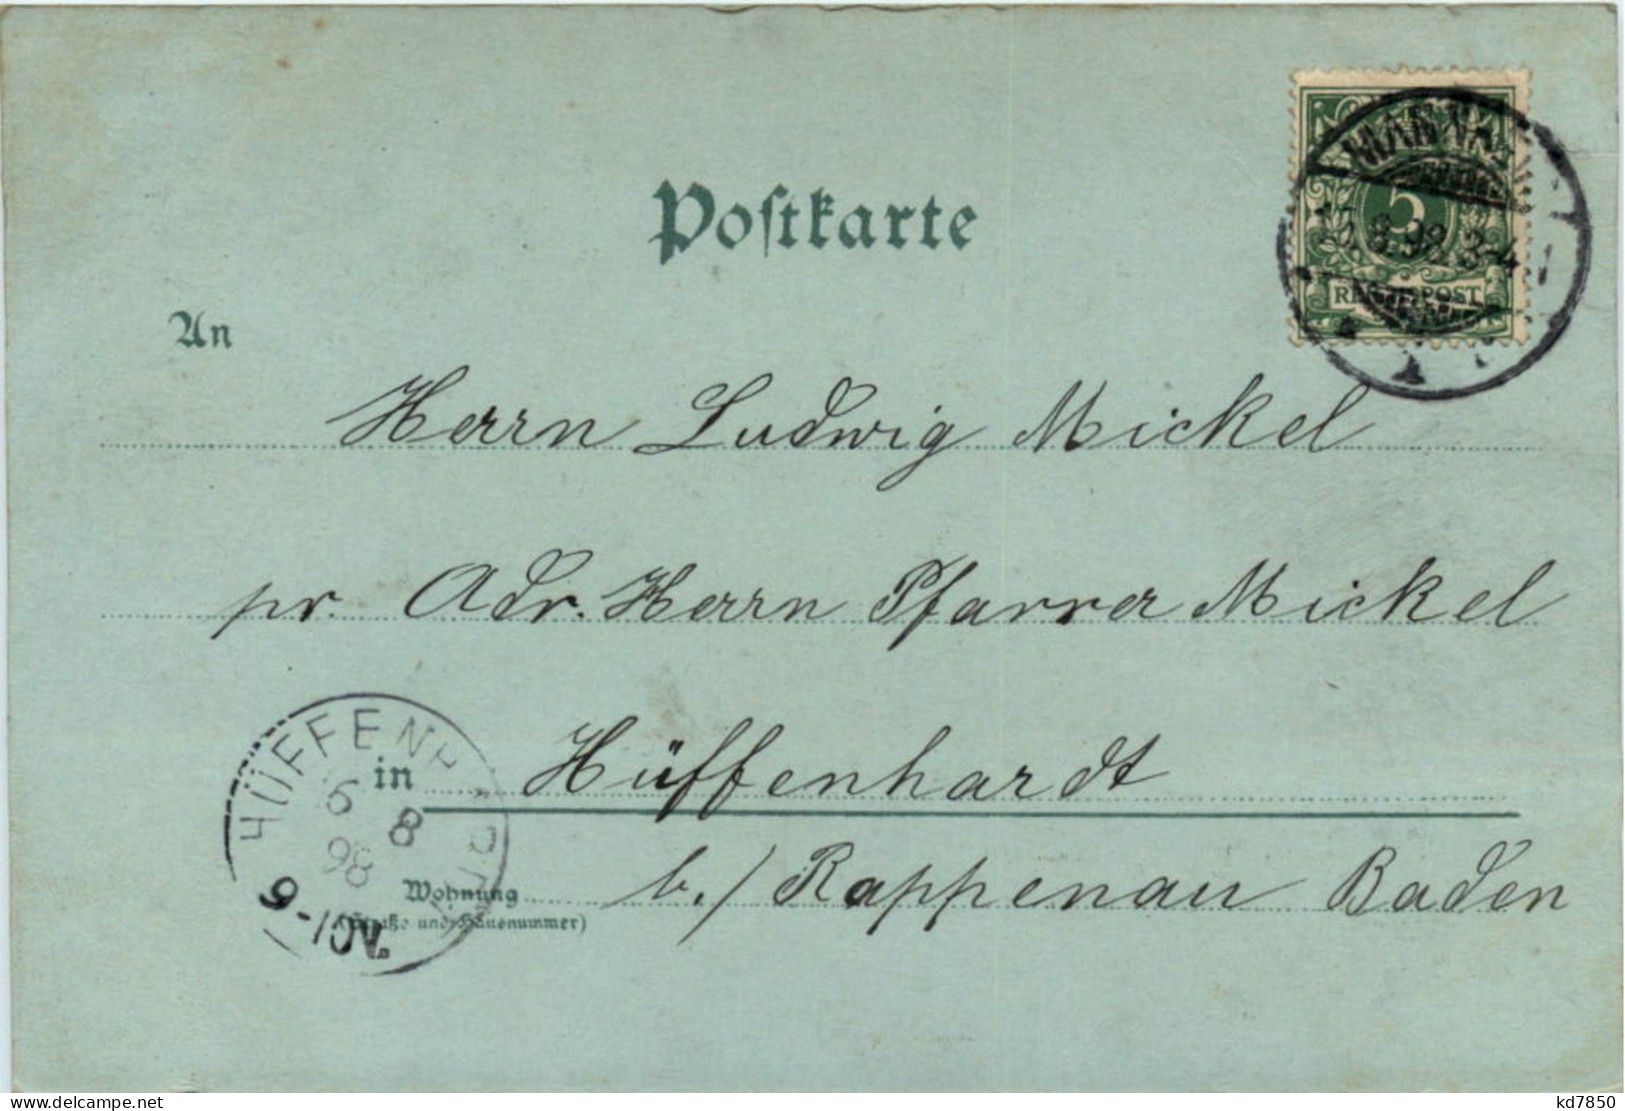 Postkarte
MANNHEIM
5.8.98.3-4
5
REICHSPOST
An
Herrn Ludwig Mickel
pr. Adr. Herrn Pfarrer Mickel
HÜFFENHARDT
6 8
98
9-10N.
in Hüffenhardt
b./ Rappenau Baden
Wohnung
(Straße und Hausnummer)
kd7850